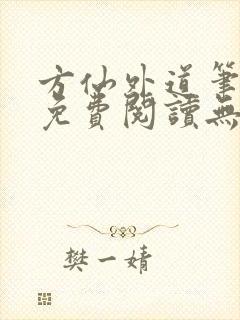 方仙外道筆
免費閱讀無
樊一婧